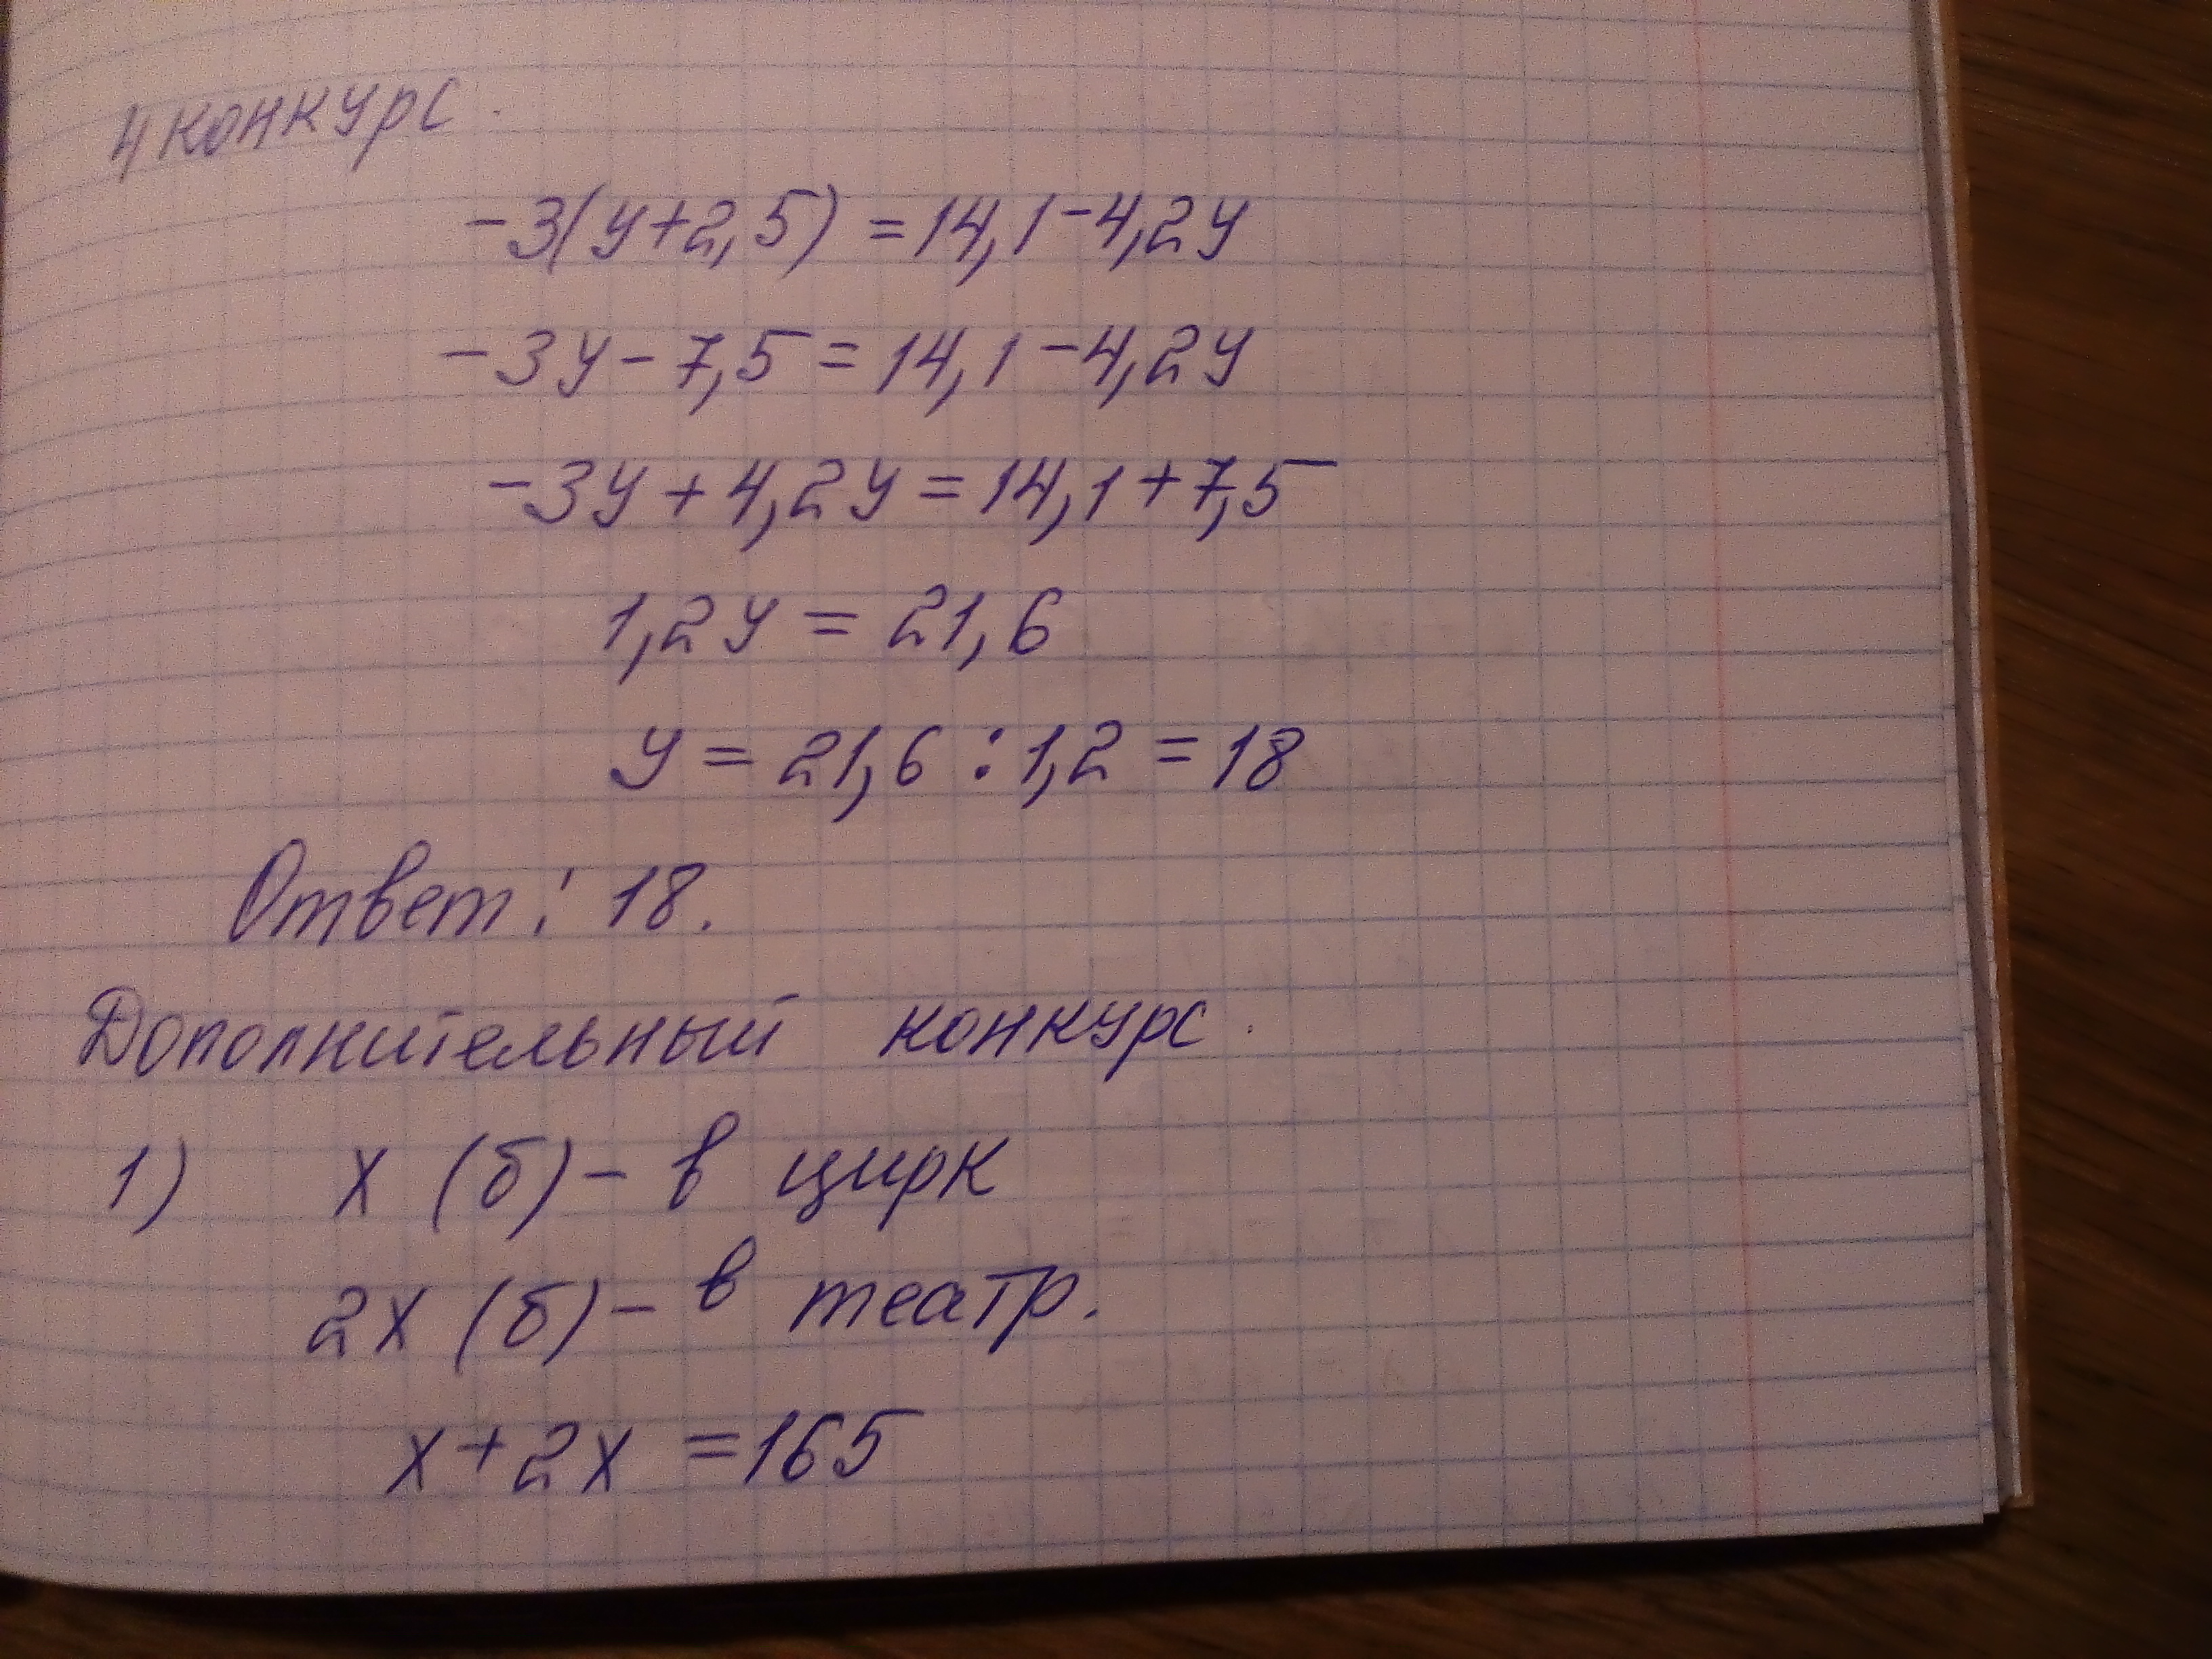 4 конкурс.
-3(y+2,5) = 14,1-4,2y
-3y-7,5 = 14,1-4,2y
-3y+4,2y = 14,1+7,5
1,2y = 21,6
y = 21,6 : 1,2 = 18
Ответ: 18.
Дополнительный конкурс.
1) x (б) - в цирк
2x (б) - в театр.
x+2x = 165